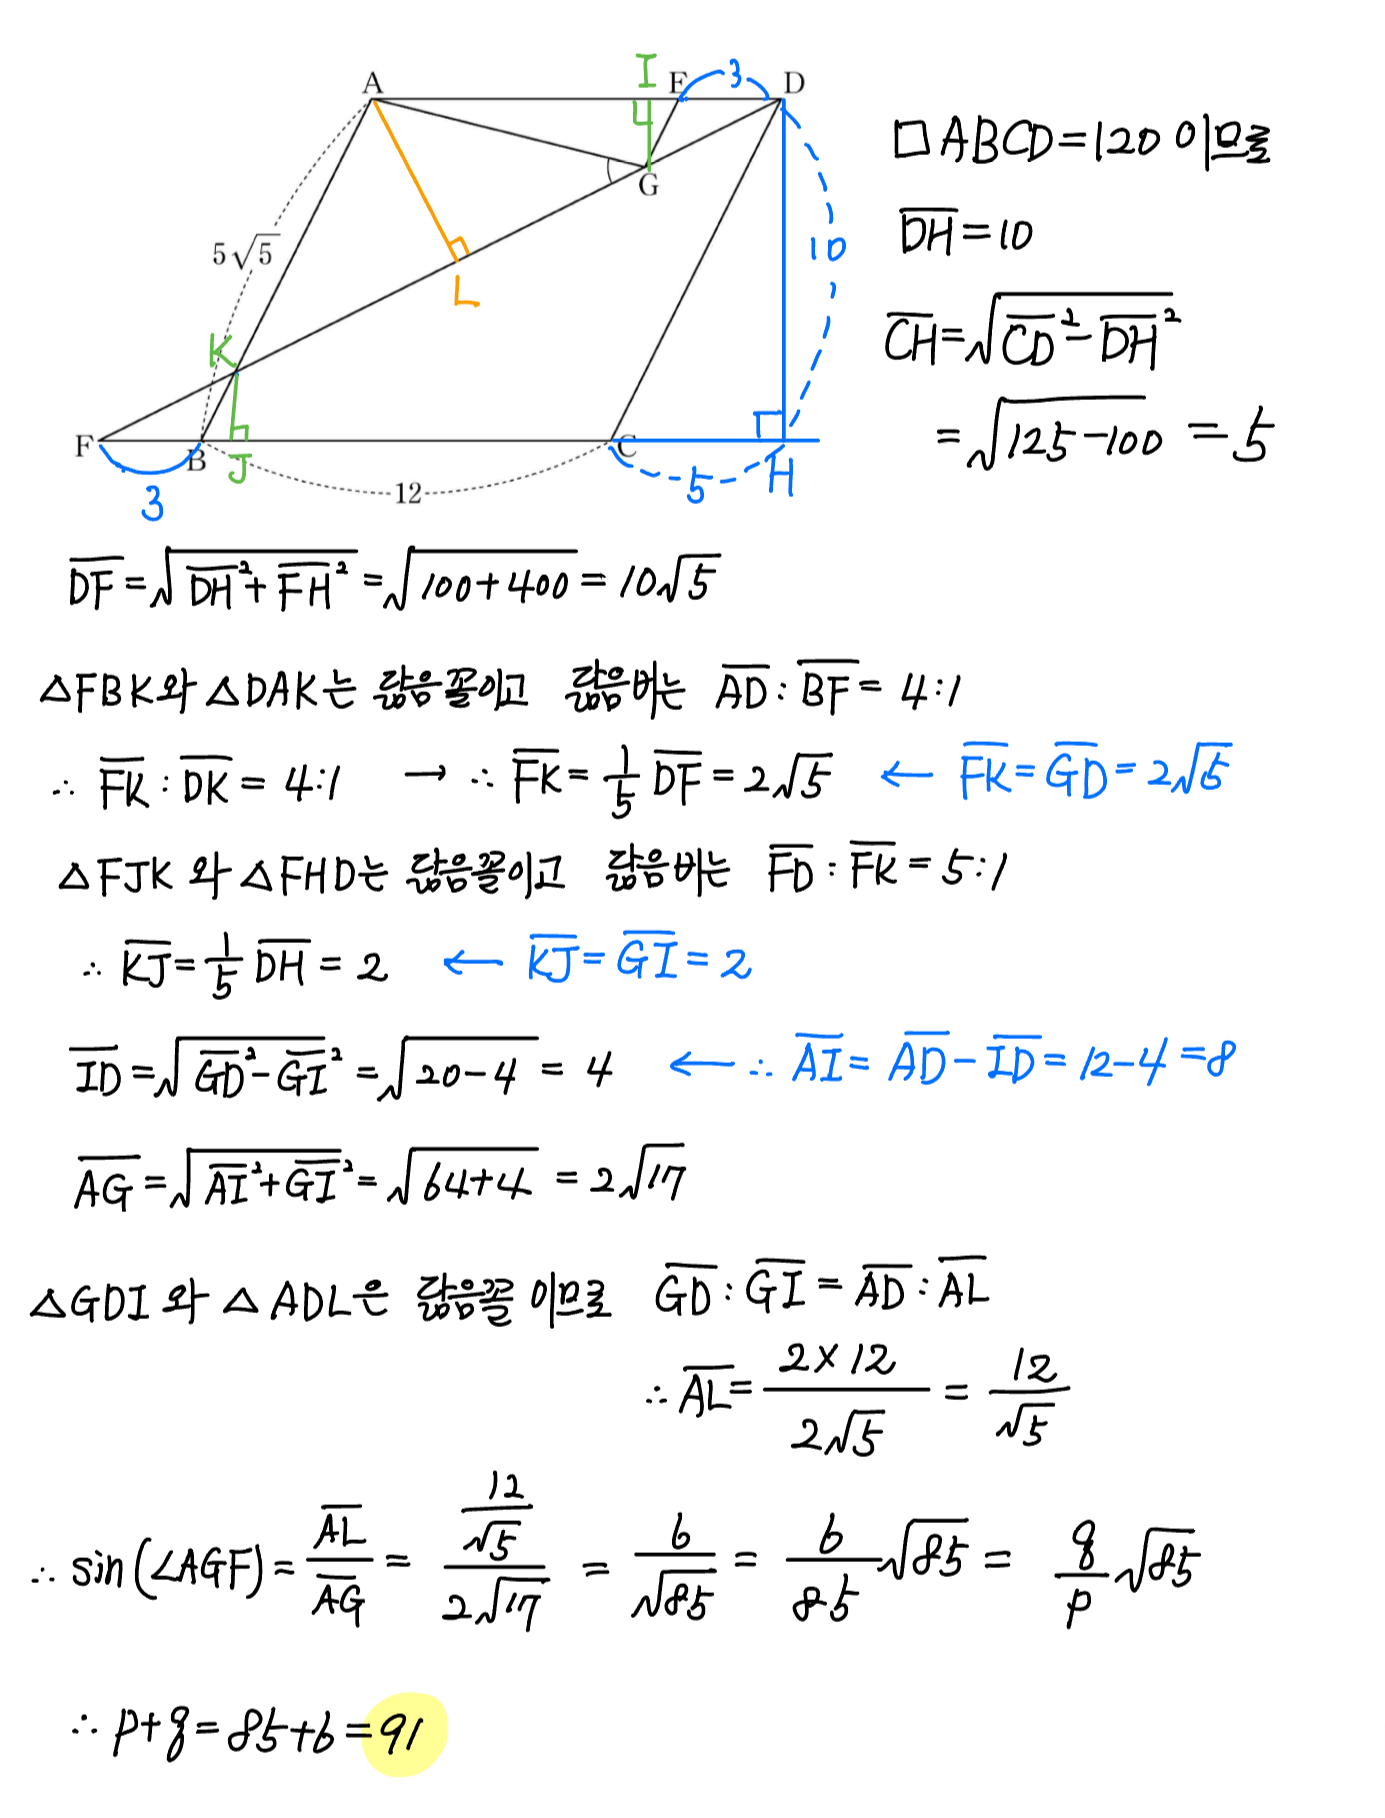 I E 3 D
A
4
G
□ABCD=120 이므로
DH=10
5√5
10
L
CH=√(CD²-DH²)
K
=√(125-100) = 5
F B J C H
5
12
3
DF=√(DH²+FH²)=√(100+400)=10√5
△FBK와 △DAK는 닮음꼴이고 닮음비는 AD:BF=4:1
∴ FK:DK=4:1 → ∴ FK=1/5 DF=2√5 ← FK=GD=2√5
△FJK 와 △FHD는 닮음꼴이고 닮음비는 FD:FK=5:1
∴ KJ=1/5 DH=2 ← KJ=GI=2
ID=√(GD²-GI²)=√(20-4)=4 ← ∴ AI=AD-ID=12-4=8
AG=√(AI²+GI²)=√(64+4)=2√17
△GDI 와 △ADL은 닮음꼴 이므로 GD:GI=AD:AL
∴ AL=(2×12)/(2√5)=12/√5
∴ sin(∠AGF)=AL/AG=(12/√5)/(2√17)=6/√85=6/85 √85=q/p √85
∴ p+q=85+6=91